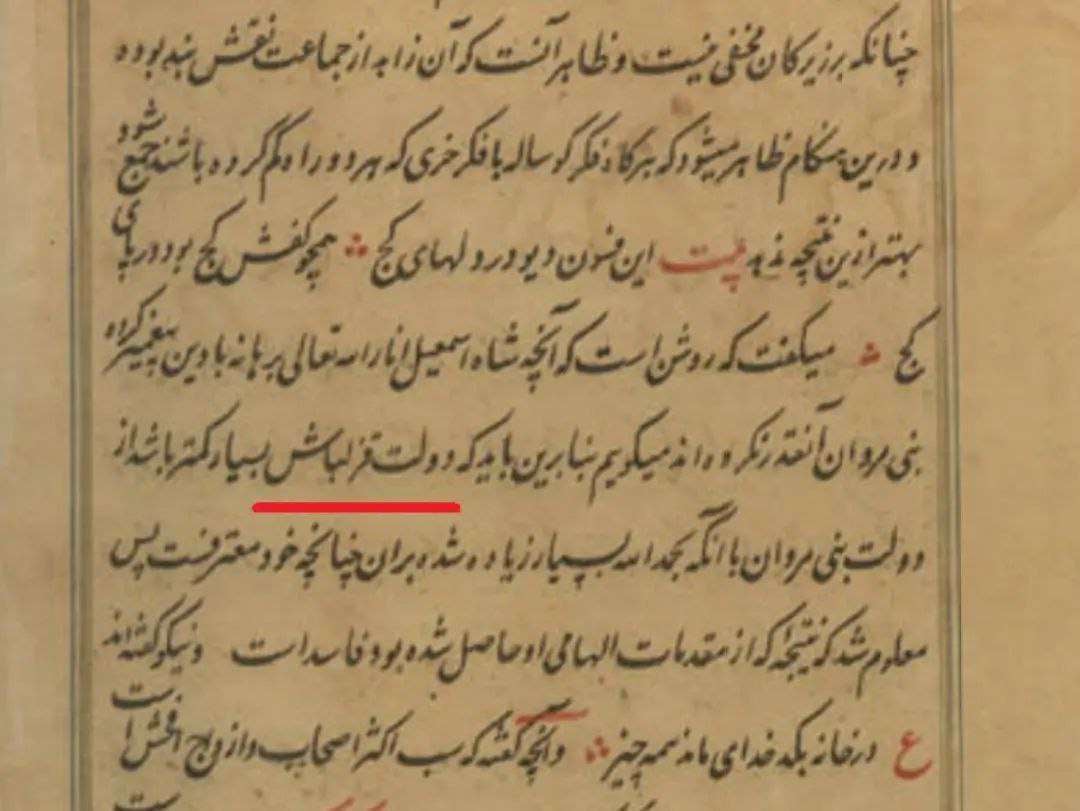 چنانکه برزیرکان مخفی نیست و ظاهر آنست که آن زاهد از جماعت نقش بند بوده
و درین هنگام ظاهر میشود که هرکاه فکر کوساله با فکر خری که هر دو راه کم کرده باشند جمع شود
بهتر ازین نتیجه ندهد بیت این فسون دیو در دلهای کج همچو کفش کج بود در پای
کج میکفت که روشن است که آنچه شاه اسمعیل انار الله تعالی برهانه با دین پیغمبر کرده
بنی مروان آنقدر نکرده اند میکویم بنابرین باید که دولت قزلباش بسیار کمتر باشد از
دولت بنی مروان با آنکه بحمد الله بسیار زیاده شده بر آن چنانچه خود معترفست پس
معلوم شد که نتیجه که از مقدمات الهامی او حاصل شده بود فاسد است و نیکو کفته اند
ع در خانه بکدخدای ماند همه چیز و آنچه کفته که سب اکثر اصحاب و ازواج افحش است